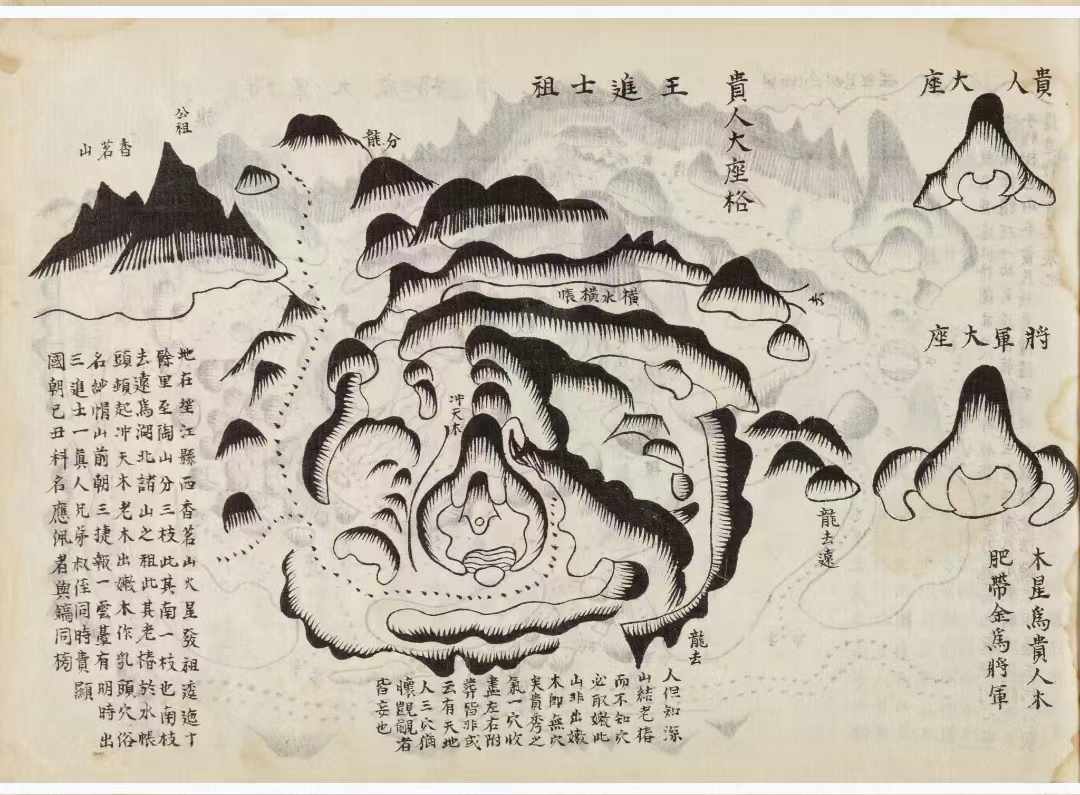 貴人大座
將軍大座
木星爲貴人木
肥帶金爲將軍
貴人大座格
王進士祖
分龍
公祖
香茗山
橫水橫帳
去
冲天木
龍去遠
龍去
人但知深
山結老樁
而不知穴
必取嫰此
山非出嫰
木即無穴
矣貴秀之
氣一穴收
盡左右附
葬皆非或
云有天地
人三穴猶
懷覬覦者
皆妄也
地在望江縣西香茗山火星發祖逶迤十
餘里至陶山分三枝此其南一枝也南枝
去遠爲湖北諸山之祖此其老樁於水帳
頭頓起冲天木老木出嫰木作乳頭穴俗
名紗帽山前朝三捷報一雲臺有明時出
三進士一眞人兄弟叔侄同時貴顯
國朝己丑科名應佩者與鎬同榜